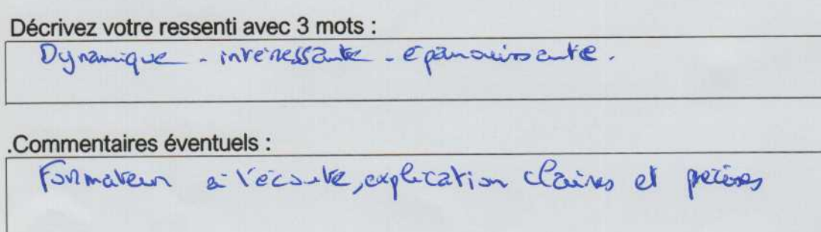 Décrivez votre ressenti avec 3 mots :
Dynamique - intéressante - épanouissante.
.Commentaires éventuels :
Formateur à l'écoute, explication claires et précises